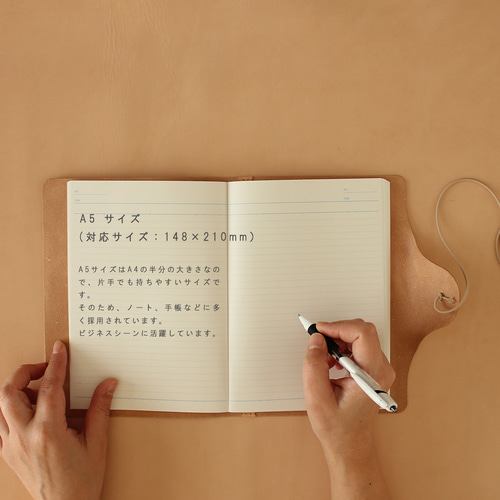 A5 サイズ
(対応サイズ：148×210mm)
A5サイズはA4の半分の大きさなの
で、片手でも持ちやすいサイズで
す。
そのため、ノート、手帳などに多
く採用されています。
ビジネスシーンに活躍しています。